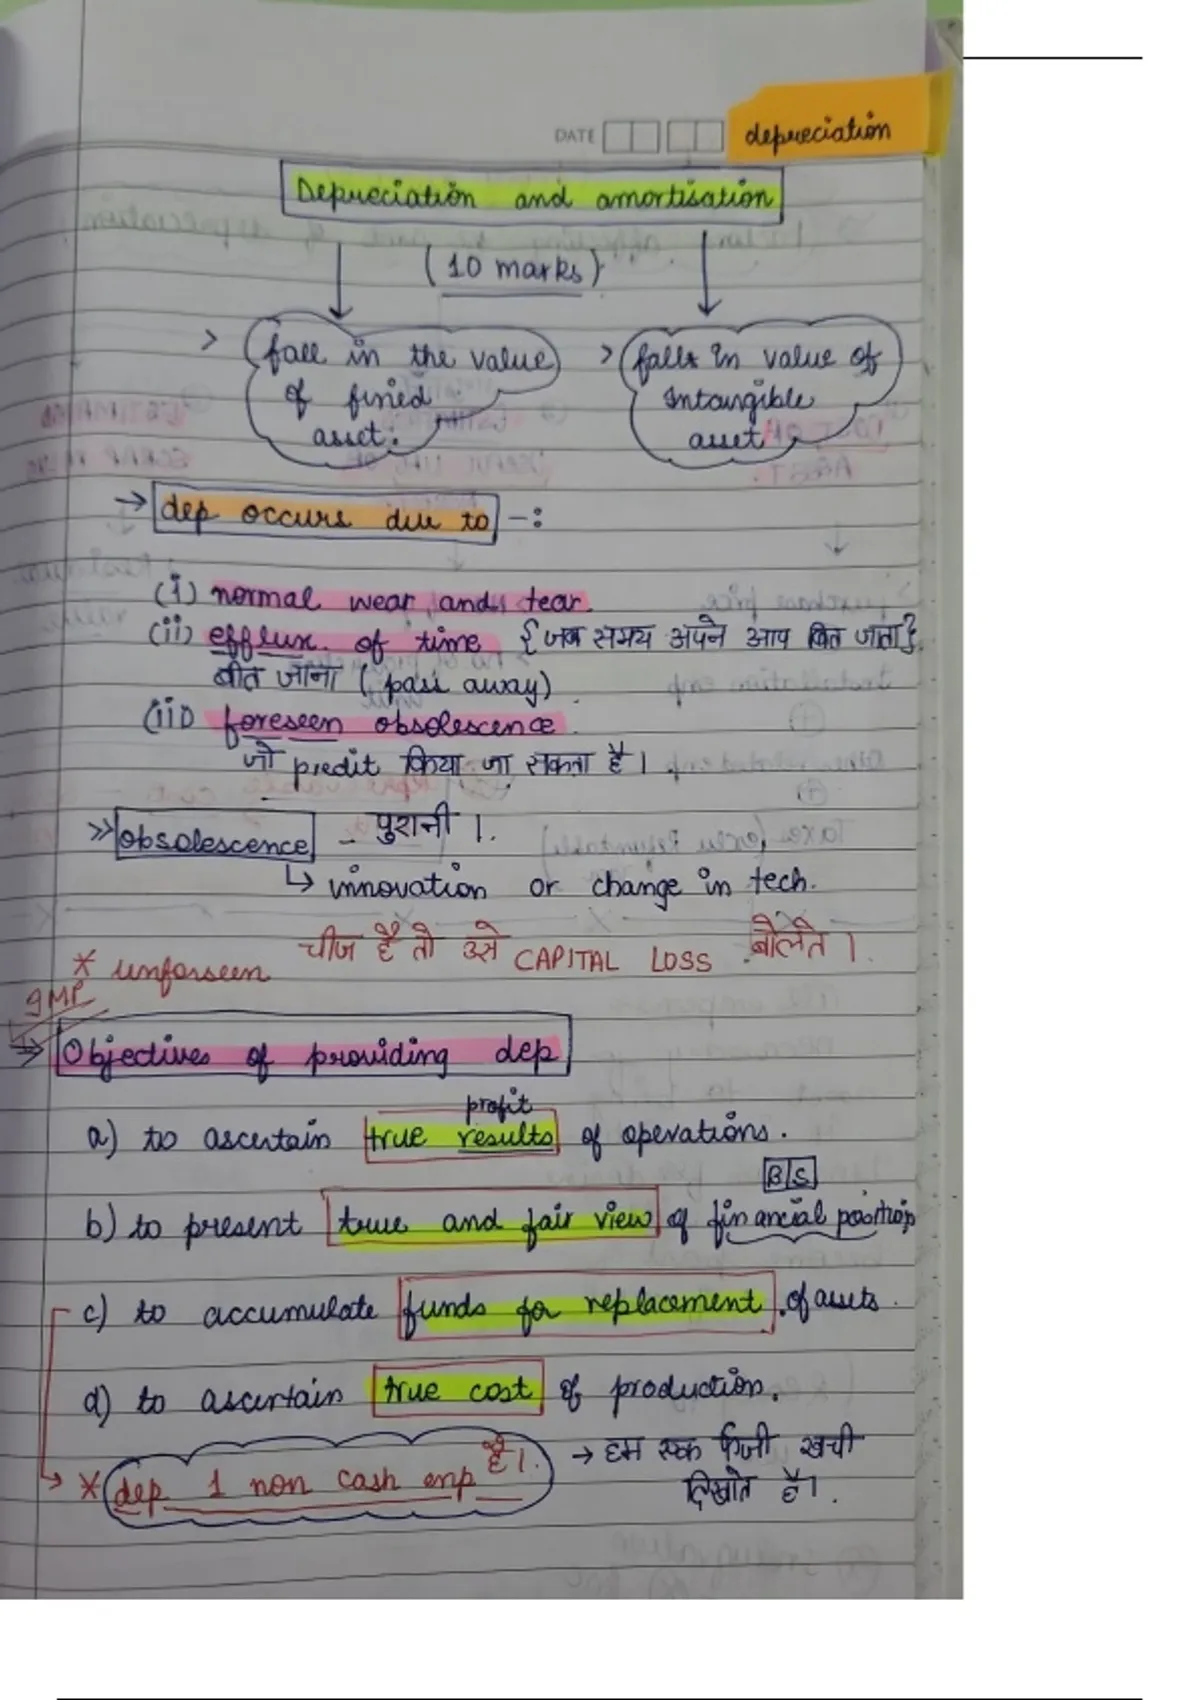 DATE
depreciation
Depreciation and amortisation
(10 marks)
> fall in the value of fixed asset.
> falls in value of Intangible asset
→ dep occurs due to -:
(i) normal wear and tear.
(ii) efflux of time {जब समय अपने आप बित जाता}
बीत जाना (pass away)
(iii) foreseen obsolescence
जो predit किया जा सकता है।
>> obsolescence - पुरानी।
↳ innovation or change in tech.
* unforseen चीज है तो उसे CAPITAL LOSS बोलते।
IMP
→ Objectives of providing dep
profit
a) to ascertain true results of operations.
B/S
b) to present true and fair view of financial position
c) to accumulate funds for replacement of assets.
d) to ascertain true cost of production.
* dep 1 non cash exp है। → हम एक फर्जी खर्चा
दिखाते है।